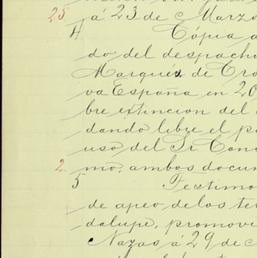 25 á 23 de Marzo
4 Cópia a
do del despacho
Marqués de Cro
va España en 20
bre extincion del
dando libre el p
uso del Sr Con
2 mo. ambos docum
5 Testimo
de apeo, de los te
dalupe, promovi
Nazas á 29 de